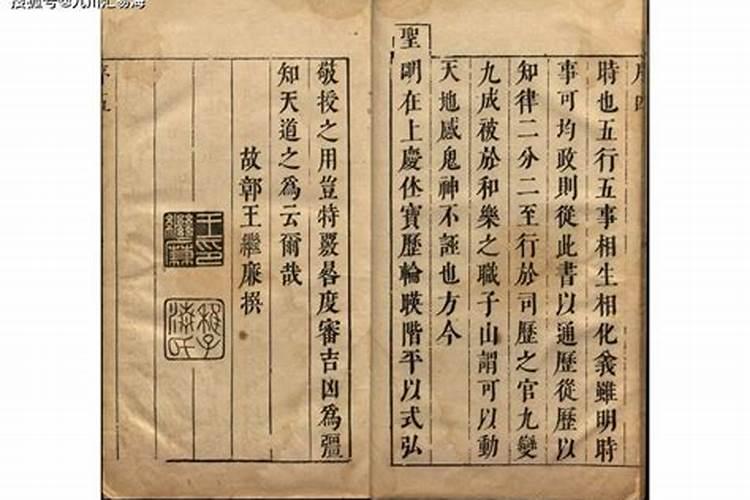 時也五行五事相生相化義雖明時
事可均政則從此書以通歷從歷以
知律二分二至行於司歷之官九變
九成被於和樂之職子山謂可以動
天地感鬼神不誣也方今
聖明在上慶休寶歷輪暎階平以式弘
敬授之用豈特覈晷度審吉凶爲彊
知天道之爲云爾哉
故鄣王繼廉撰
王印繼廉